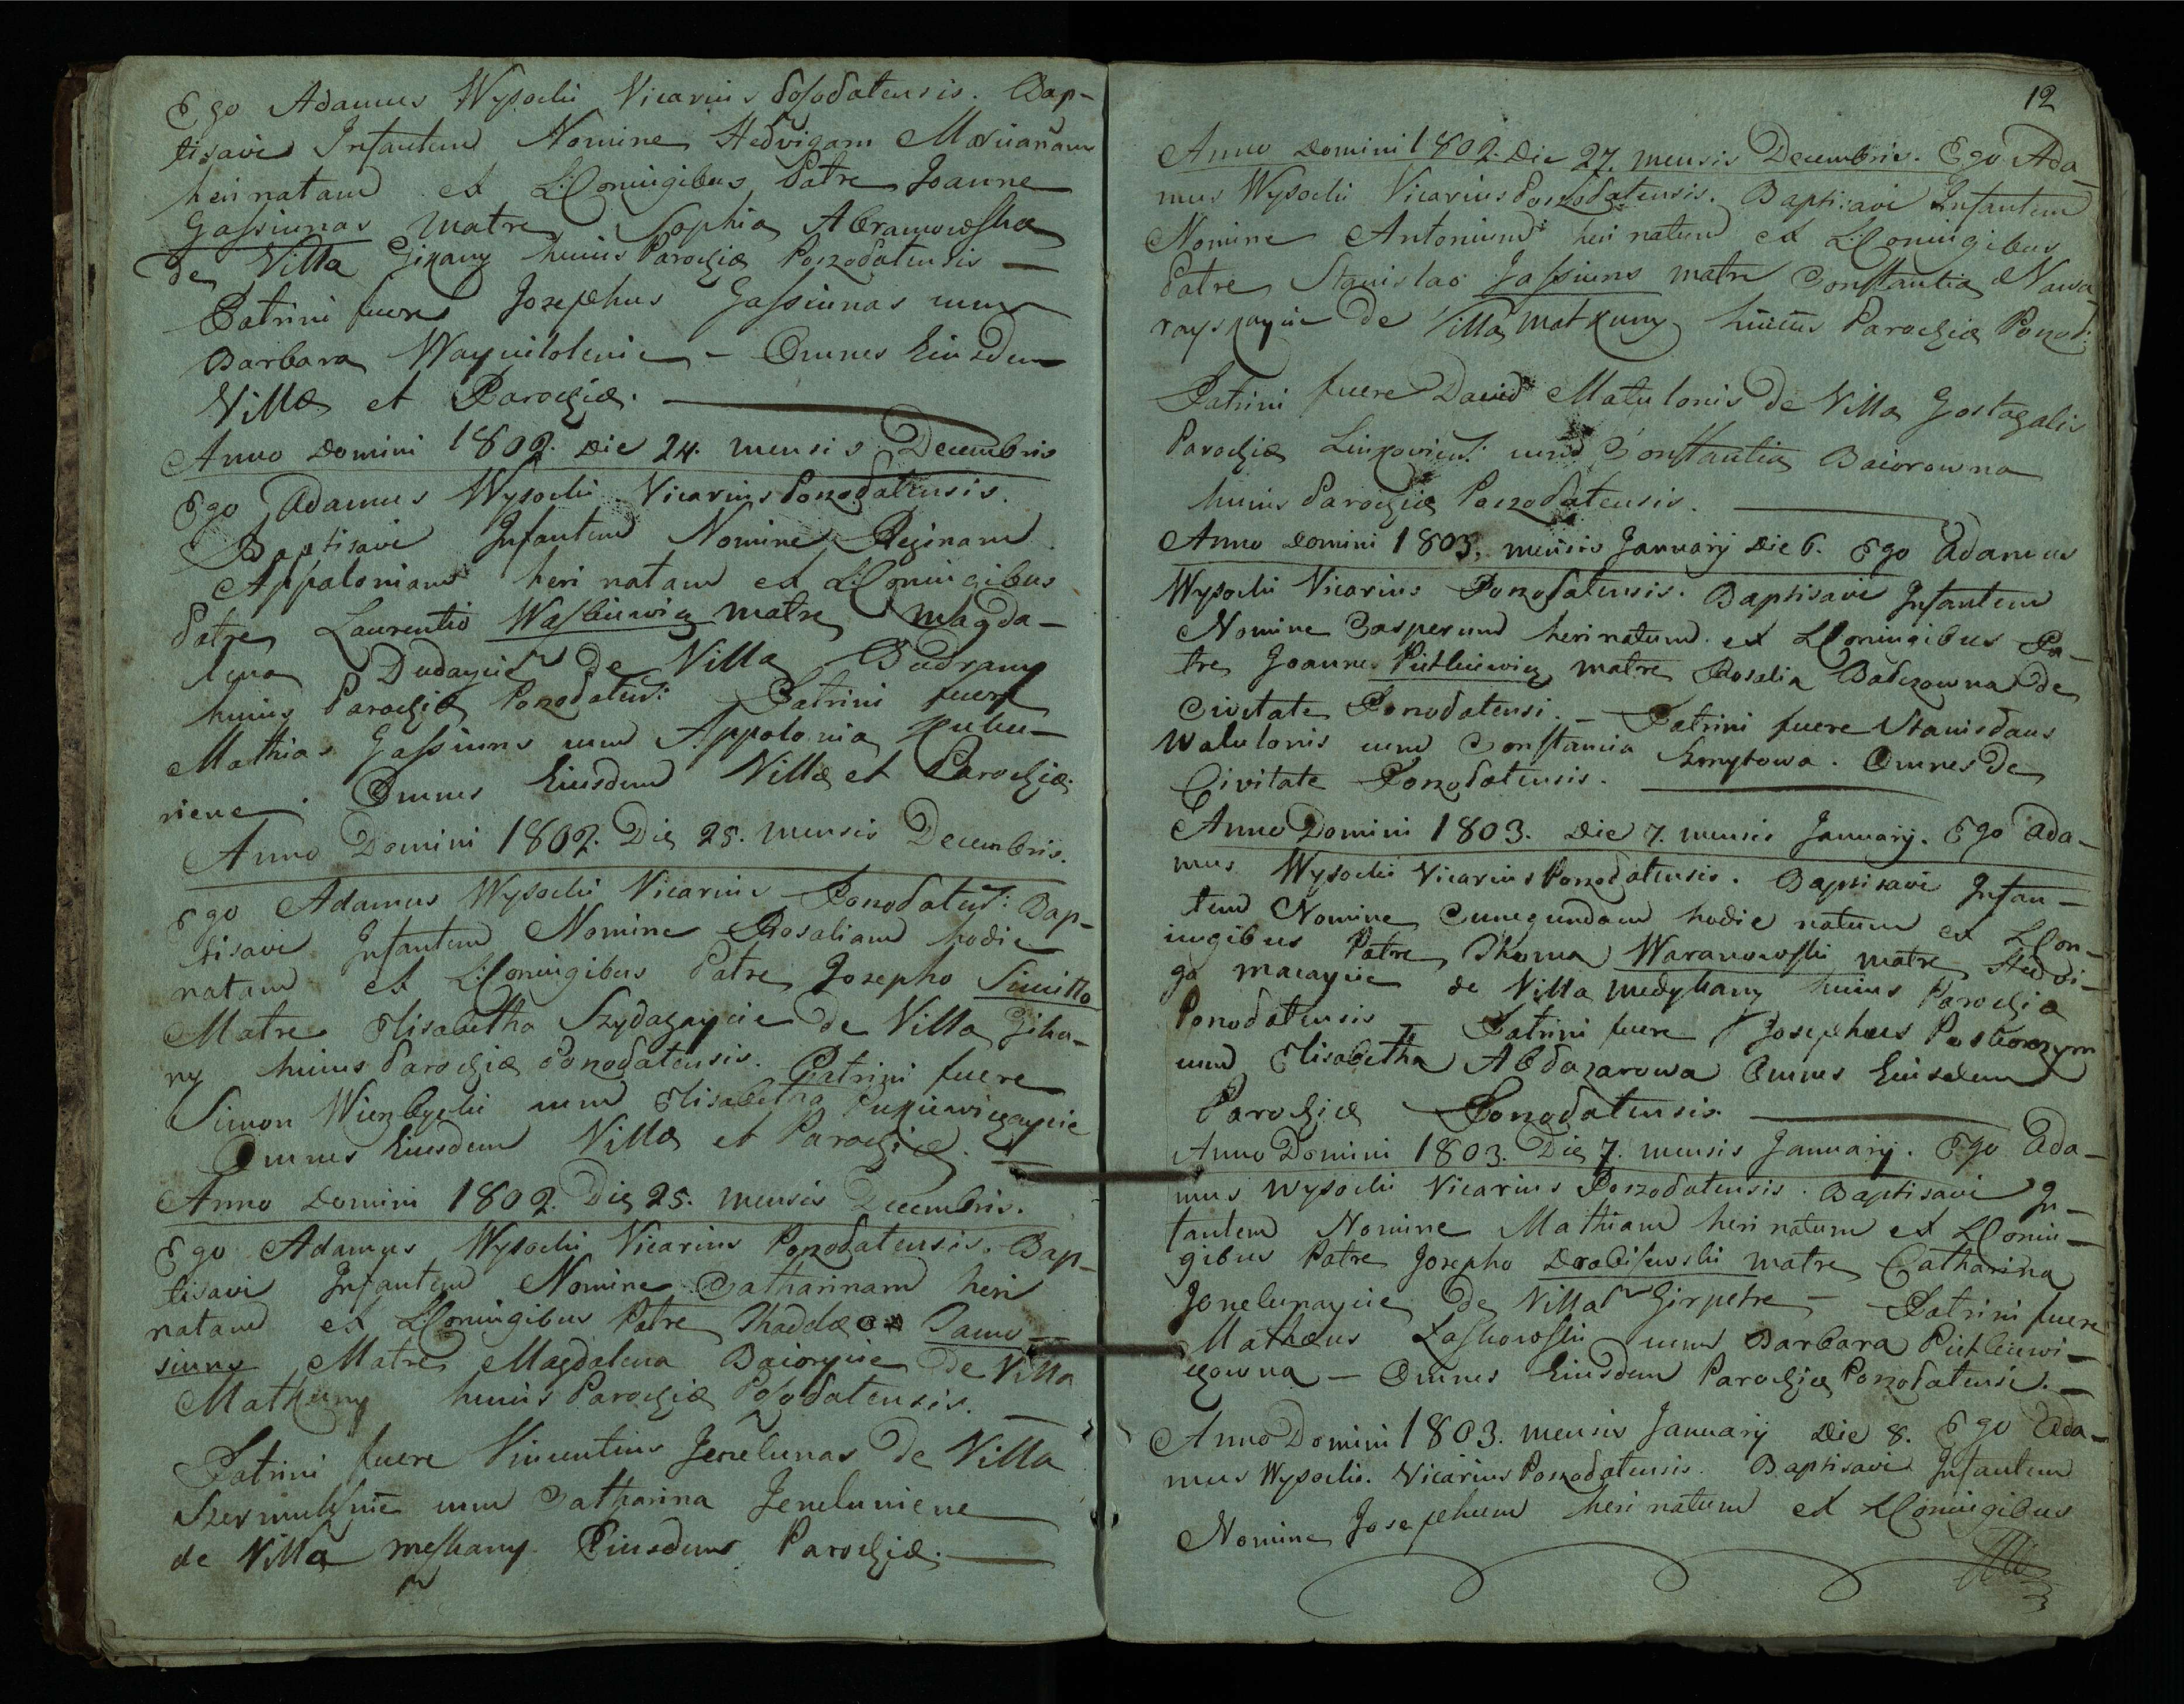 Ego Adamus Wysocki Vicarius Posodatensis. Bap-
tisavi Infantem Nomine Hedvigam Mariañam
heri natam ex LLConiugibus Patre Joanne
Gassiunas Matre Sophia Abramowska
de Villa Gikany huius Parochiæ Ponodatensis —
Patrini fuere Josephus Gassiunas cum
Barbara Waynilolenie — Omnes Eiusdem
Villæ et Parochiæ. —
Anno Domini 1802. Die 24. mensis Decembris
Ego Adamus Wysocki Vicarius Ponodatensis.
Baptisavi Infantem Nomine Reginam
Appaloniam heri natam ex LLConiugibus
Patre Laurentio Waskiewicz matre Magda-
lena Dudaycie de Villa Budrany
huius Parochiæ Ponodatens: Patrini fuere
Mathias Gassiuns cum Appolonia
riene. Omnes Eiusdem Villæ et Parochiæ.
Anno Domini 1802. Die 25. mensis Decembris.
Ego Adamus Wysocki Vicarius Ponodatens: Bap-
tisavi Infantem Nomine Rosaliam hodie
natam ex LLConiugibus Patre Josepho
Matre Elisabetha Szydagaycie de Villa Gika-
ny huius Parochiæ Ponodatensis. Patrini fuere
Simon Wierzbycki cum Elisabetha Pukiewiczaycie
Omnes Eiusdem Villæ et Parochiæ. —
Anno Domini 1802. Die 25. mensis Decembris.
Ego Adamus Wysocki Vicarius Ponodatensis. Bap-
tisavi Infantem Nomine Catharinam heri
natam ex LLConiugibus Patre Thaddæo Jamo-
siuns Matre Magdalena Baiorycie de Villa
Matkuny huius Parochiæ Posodatensis.
Patrini fuere Vincentius Jenelunas de Villa
cum Catharina Jeneluniene
de Villa meskany Eiusdems Parochiæ. —
12
Anno Domini 1802. Die 27. mensis Decembris. Ego Ada-
mus Wysocki Vicarius Ponodatensis. Baptisavi Infantem
Nomine Antonium heri natum ex LLConiugibus
Patre Stanislao Jassiuns matre Constantia Nawa-
rayskaycie de Villa Matkuny huius Parochiæ Ponod:
Patrini fuere David Matulonis de Villa Gostagalis
Parochiæ Linkoviens: cum Constantia Baiorowna
huius Parochiæ Ponodatensis. —
Anno Domini 1803. mensis Januarij Die 6. Ego Adamus
Wysocki Vicarius Ponodatensis. Baptisavi Infantem
Nomine Casperum heri natum ex LLConiugibus Pa-
tre Joanne Pietkiewicz matre Rosalia Babczowna de
Civitate Ponodatensi. — Patrini fuere Stanislaus
Walulonis cum Constancia Szmytowa. Omnes de
Civitate Ponodatensis. —
Anno Domini 1803. Die 7. mensis Januarij. Ego Ada-
mus Wysocki Vicarius Ponodatensis. Baptisavi Infan-
tem Nomine Cunegundam hodie natum ex LLCon-
iugibus Patre Thoma Waranowski matre Hedvi-
ga macaycie de Villa Medykany huius Parochiæ
Ponodatensis Patrini fuere Josephus
cum Elisabetha Abdazarowa Omnes Eiusdem
Parochiæ Ponodatensis. —
Anno Domini 1803. Die 7. mensis Januarij. Ego Ada-
mus Wysocki Vicarius Ponodatensis. Baptisavi In-
fantem Nomine Mathiam heri natum ex LLConiu-
gibus Patre Josepho Drobiszewski matre Catharina
Jonelunaycie de Villa Girpetre — Patrini fuere
Mathæus Laskowski cum Barbara Pietkiewi-
czowna — Omnes Eiusdem Parochiæ Ponodatensi. —
Anno Domini 1803. mensis Januarij Die 8. Ego Ada-
mus Wysocki. Vicarius Ponodatensis. Baptisavi Infantem
Nomine Josephum heri natum ex LLConiugibus